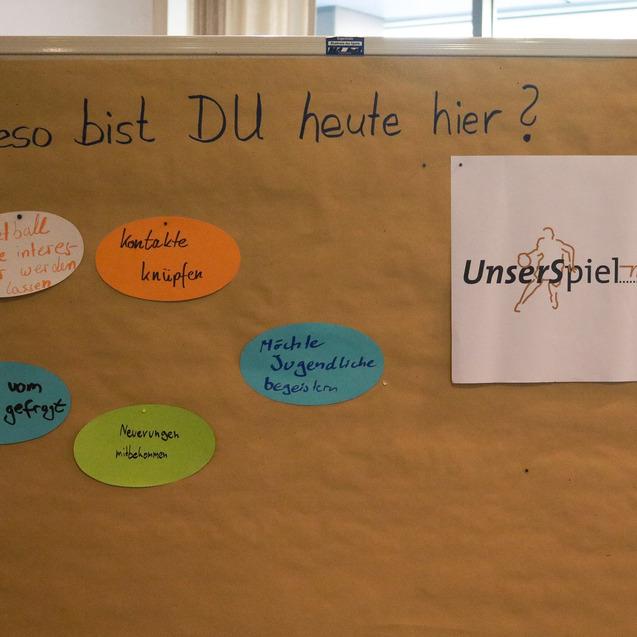 eso bist DU heute hier?
tball
e interes-
r werden
lassen
Kontakte
knüpfen
UnserSpiel
Möchte
Jugendliche
begeistern
vom
gefragt
Neuerungen
mitbekommen